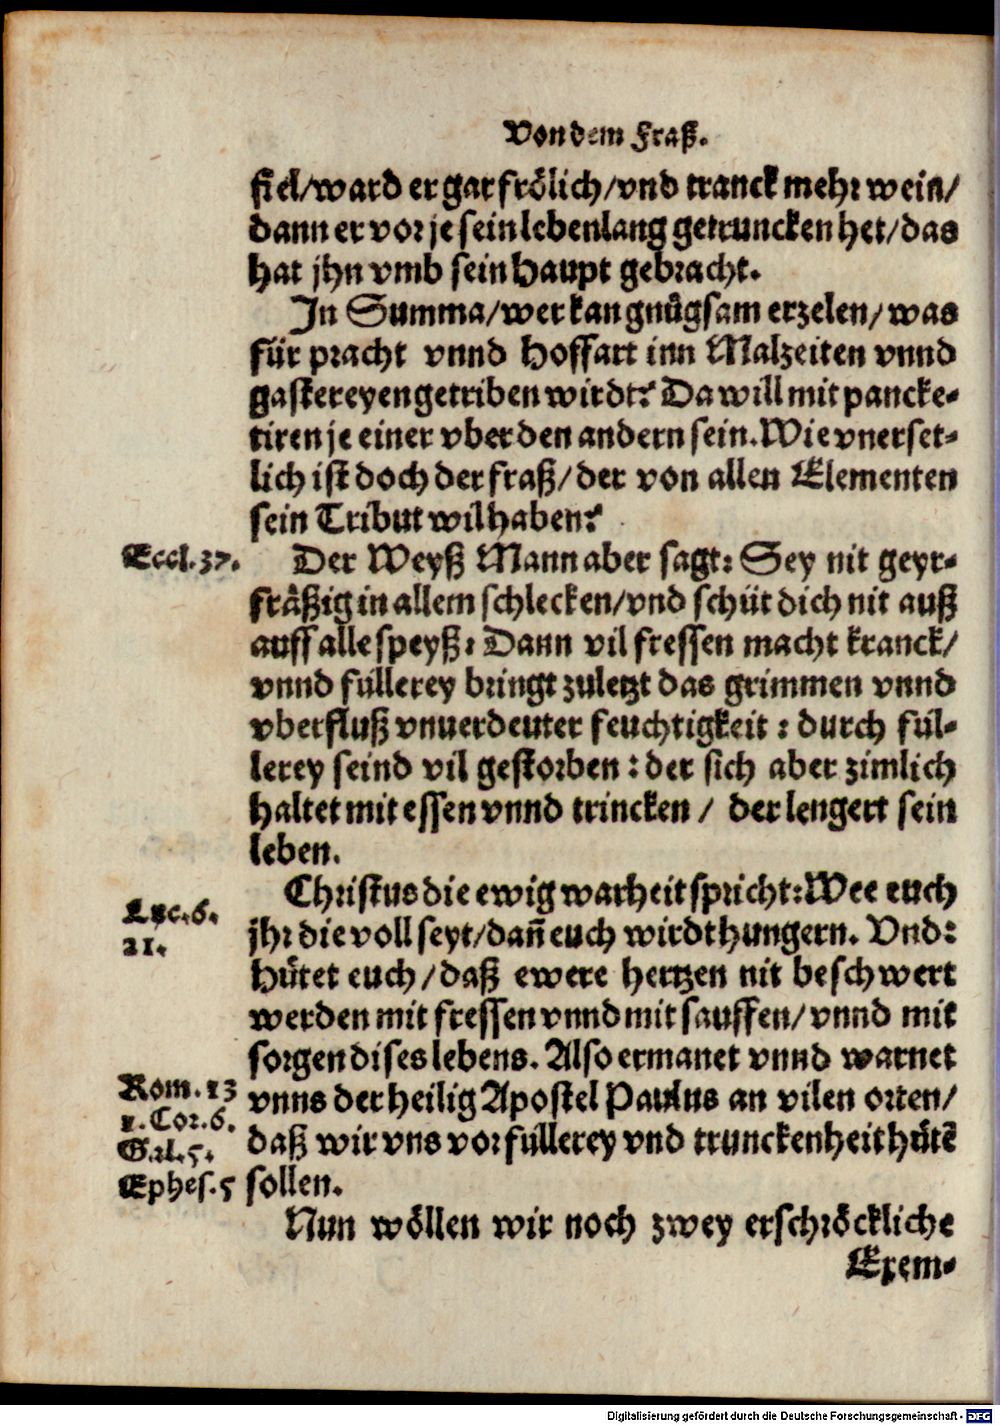 Von dem Fraß.
fiel/ward er gar frölich/vnd tranck mehr wein/
dann er vor je sein lebenlang getruncken het/das
hat jhn vmb sein Haupt gebracht.
In Summa/wer kan gnůgsam erzelen/was
für pracht vnnd Hoffart inn Malzeiten vnnd
gastereyen getriben wirdt? Da will mit pancke-
tiren je einer vber den andern sein. Wie vnerset-
lich ist doch der fraß/der von allen Elementen
sein Tribut wil haben?
Eccl. 37.
Der Weyß Mann aber sagt: Sey nit geyr-
fräßig in allem schlecken/vnd schüt dich nit auß
auff alle speyß: Dann vil fressen macht kranck/
vnnd füllerey bringt zuletzt das grimmen vnnd
vberfluß vnuerdeuter feuchtigkeit: durch fül-
lerey seind vil gestorben: der sich aber zimlich
haltet mit essen vnnd trincken/ der lengert sein
leben.
Christus die ewig warheit spricht: Wee euch
Luc. 6.
21.
jhr die voll seyt/dañ euch wirdt hungern. Vnd:
Hůtet euch/daß ewere hertzen nit beschwert
werden mit fressen vnnd mit sauffen/vnnd mit
sorgen dises lebens. Also ermanet vnnd warnet
Rom. 13
1. Cor. 6.
Gal. 5.
Ephes. 5
vnns der heilig Apostel Paulus an vilen orten/
daß wir vns vor füllerey vnd trunckenheit hůtẽ
sollen.
Nun wöllen wir noch zwey erschröckliche
Exem-
Digitalisierung gefördert durch die Deutsche Forschungsgemeinschaft - DFG